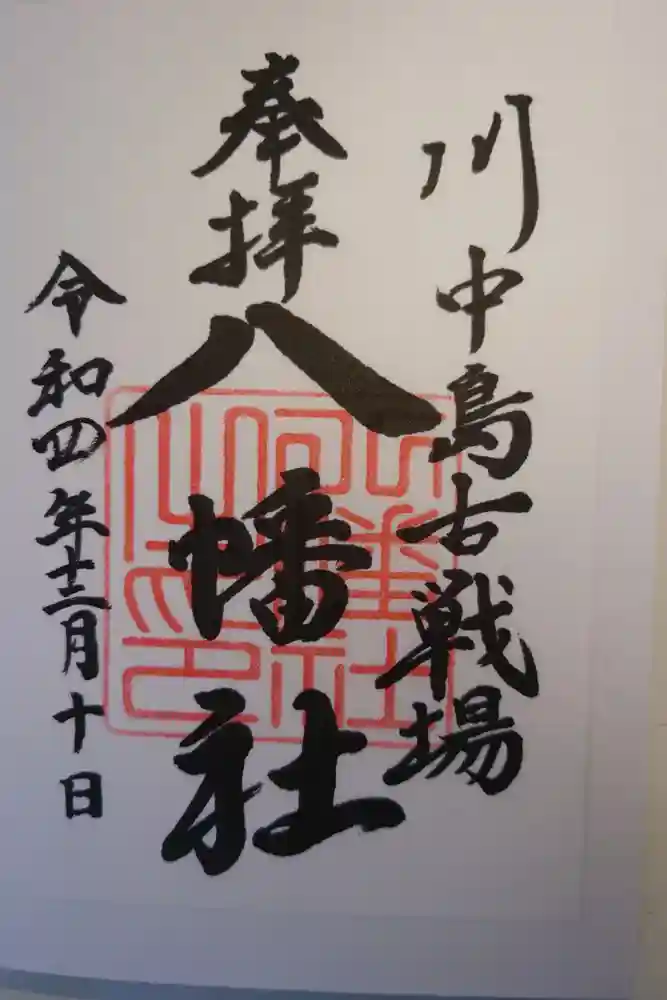 川中島古戦場
奉拝
八幡社
令和四年十二月十日